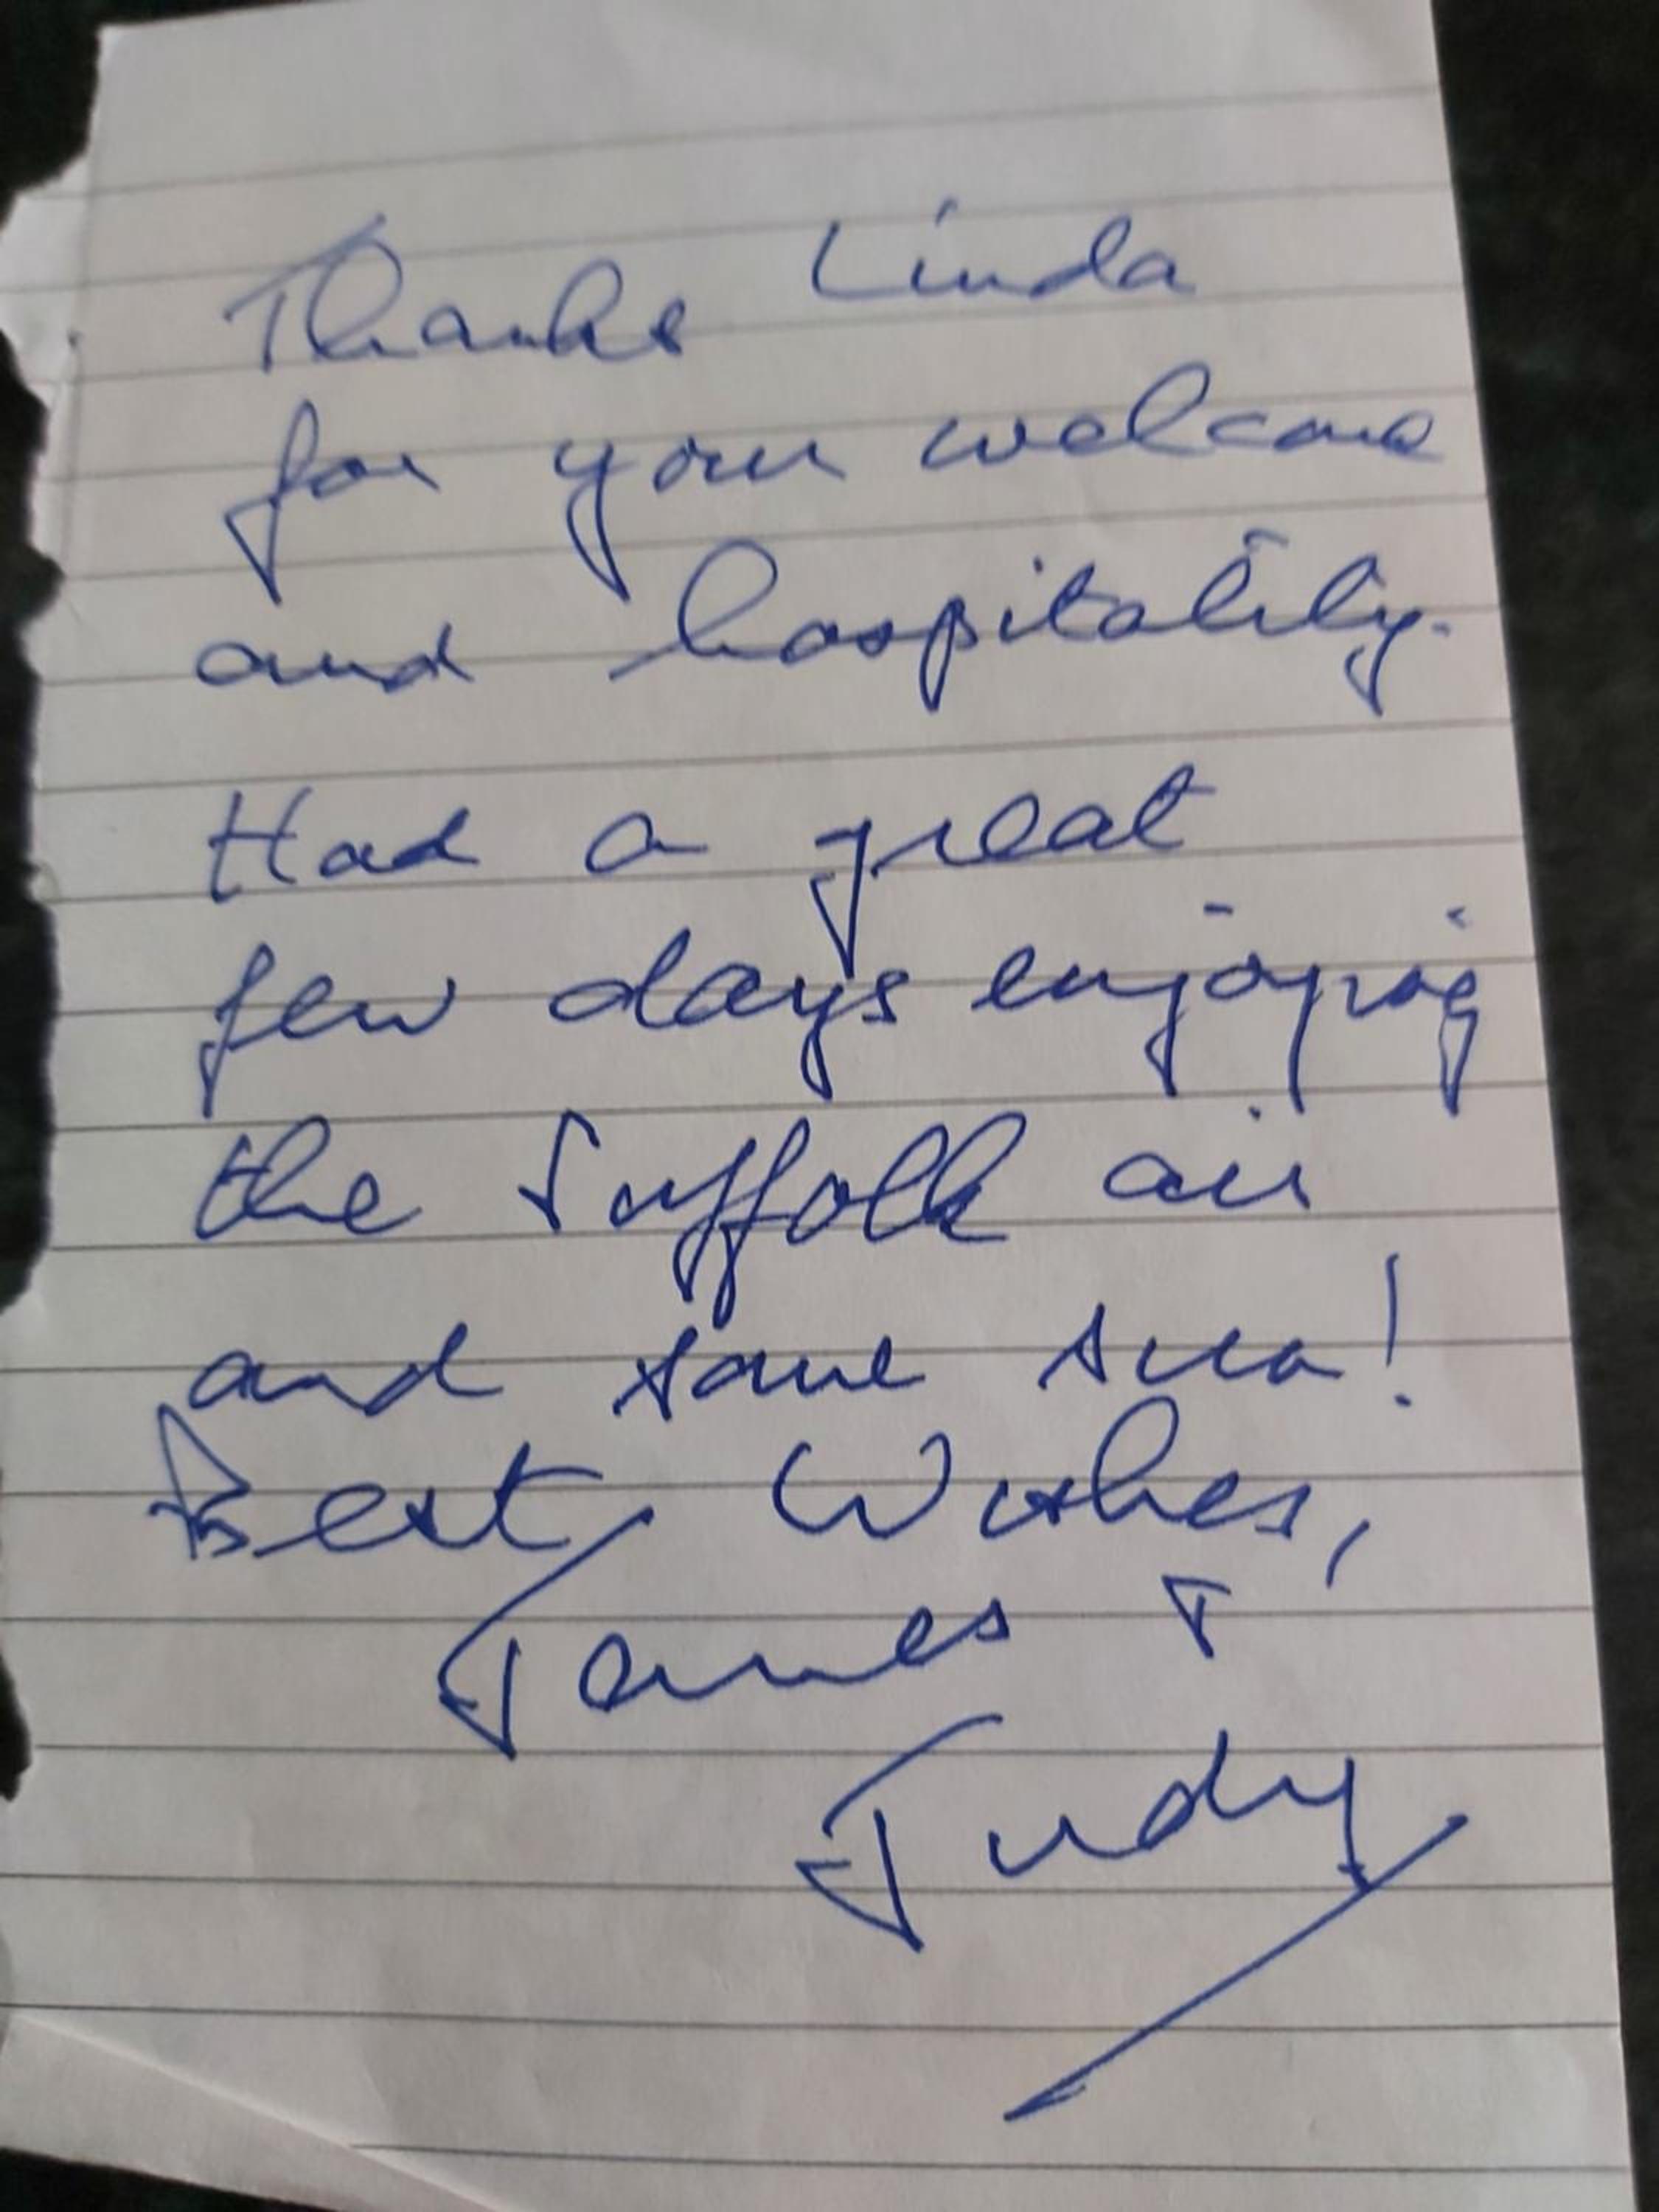 Thanks Linda
for your welcome
and hospitality.
Had a great
few days enjoying
the Suffolk air
and some sun!
Best Wishes,
James &
Judy